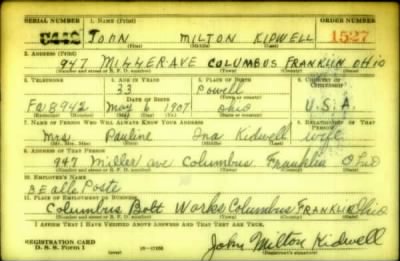 SERIAL NUMBER 1. NAME (Print) ORDER NUMBER
U442 JOHN MILTON KIDWELL 1527
(First) (Middle) (Last)
2. ADDRESS (Print)
947 MILLER AVE COLUMBUS FRANKLIN OHIO
(Number and street or R. F. D. number) (Town) (County) (State)
3. TELEPHONE 4. AGE IN YEARS 5. PLACE OF BIRTH 6. COUNTRY OF CITIZENSHIP
33 Powell
DATE OF BIRTH (Town or county)
FA 8942 May 6 1907 Ohio U.S.A.
(Exchange) (Number) (Mo.) (Day) (Yr.) (State or country)
7. NAME OF PERSON WHO WILL ALWAYS KNOW YOUR ADDRESS 8. RELATIONSHIP OF THAT PERSON
Mrs Pauline Ina Kidwell wife
(Mr., Mrs., Miss) (First) (Middle) (Last)
9. ADDRESS OF THAT PERSON
947 Miller ave Columbus Franklin Ohio
(Number and street or R. F. D. number) (Town) (County) (State)
10. EMPLOYER'S NAME
Bealls Poste
11. PLACE OF EMPLOYMENT OR BUSINESS
Columbus Bolt Works Columbus FRANKLIN Ohio
(Number and street or R. F. D. number) (Town) (County) (State)
I AFFIRM THAT I HAVE VERIFIED ABOVE ANSWERS AND THAT THEY ARE TRUE.
REGISTRATION CARD
D. S. S. Form 1 John Milton Kidwell